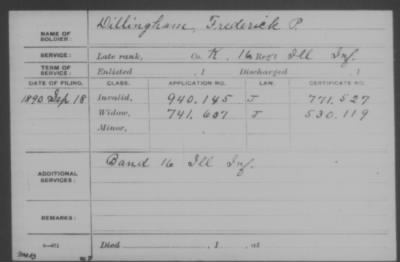 NAME OF SOLDIER: Dillingham, Frederick P.
SERVICE: Late rank, Co. K, 16 Reg't Ill Inf.
TERM OF SERVICE: Enlisted , 1 Discharged , 1
DATE OF FILING. CLASS. APPLICATION NO. LAW. CERTIFICATE NO.
1890 Sep 18 Invalid, 940.145 J 771.527
Widow, 741.607 J 530.119
Minor,
ADDITIONAL SERVICES: Band 16 Ill Inf.
REMARKS:
Died , 1 , at